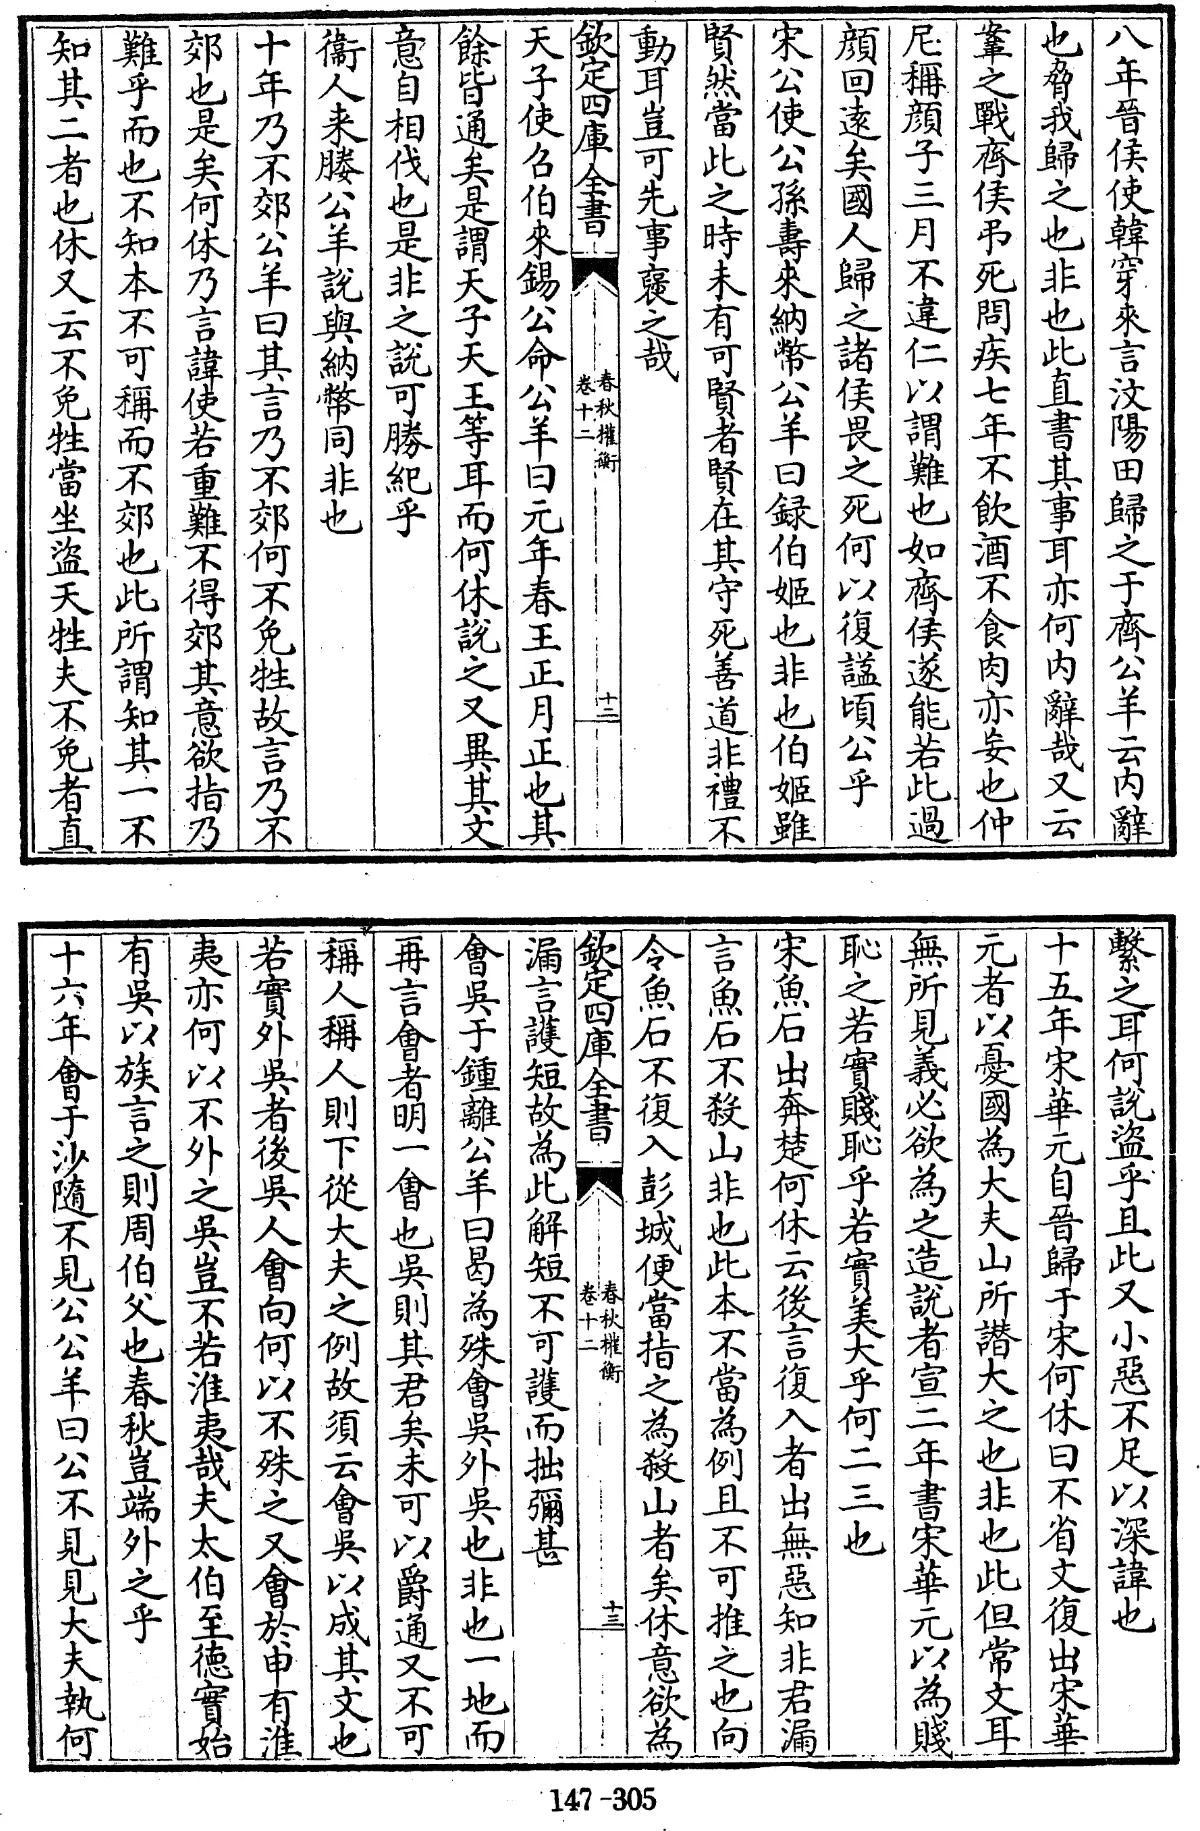 八年晉侯使韓穿來言汶陽田歸之于齊公羊云内辭
也脅我歸之也非也此直書其事耳亦何内辭哉又云
鞌之戰齊侯弔死問疾七年不飲酒不食肉亦妄也仲
尼稱顔子三月不違仁以謂難也如齊侯遂能若此過
顔回遠矣國人歸之諸侯畏之死何以復諡頃公乎
宋公使公孫壽來納幣公羊曰録伯姬也非也伯姬雖
賢然當此之時未有可賢者賢在其守死善道非禮不
動耳豈可先事襃之哉
欽定四庫全書
春秋權衡
卷十二
十二
天子使召伯來錫公命公羊曰元年春王正月正也其
餘皆通矣是謂天子天王等耳而何休說之又異其文
意自相伐也是非之說可勝紀乎
衞人来媵公羊說與納幣同非也
十年乃不郊公羊曰其言乃不郊何不免牲故言乃不
郊也是矣何休乃言諱使若重難不得郊其意欲指乃
難乎而也不知本不可稱而不郊也此所謂知其一不
知其二者也休又云不免牲當坐盜天牲夫不免者直
繫之耳何說盜乎且此又小惡不足以深諱也
十五年宋華元自晉歸于宋何休曰不省文復出宋華
元者以憂國為大夫山所譖大之也非也此但常文耳
無所見義必欲為之造說者宣二年書宋華元以為賤
恥之若實賤恥乎若實美大乎何二三也
宋魚石出奔楚何休云後言復入者出無惡知非君漏
言魚石不殺山非也此本不當為例且不可推之也向
令魚石不復入彭城便當指之為殺山者矣休意欲為
欽定四庫全書
春秋權衡
卷十二
十三
漏言護短故為此解短不可護而拙彌甚
會吳于鍾離公羊曰曷為殊會吳外吳也非也一地而
再言會者明一會也吳則其君矣未可以爵通又不可
稱人稱人則下從大夫之例故須云會吳以成其文也
若實外吳者後吳人會向何以不殊之又會於申有淮
夷亦何以不外之吳豈不若淮夷哉夫太伯至德實始
有吳以族言之則周伯父也春秋豈端外之乎
十六年會于沙隨不見公公羊曰公不見見大夫執何
147-305